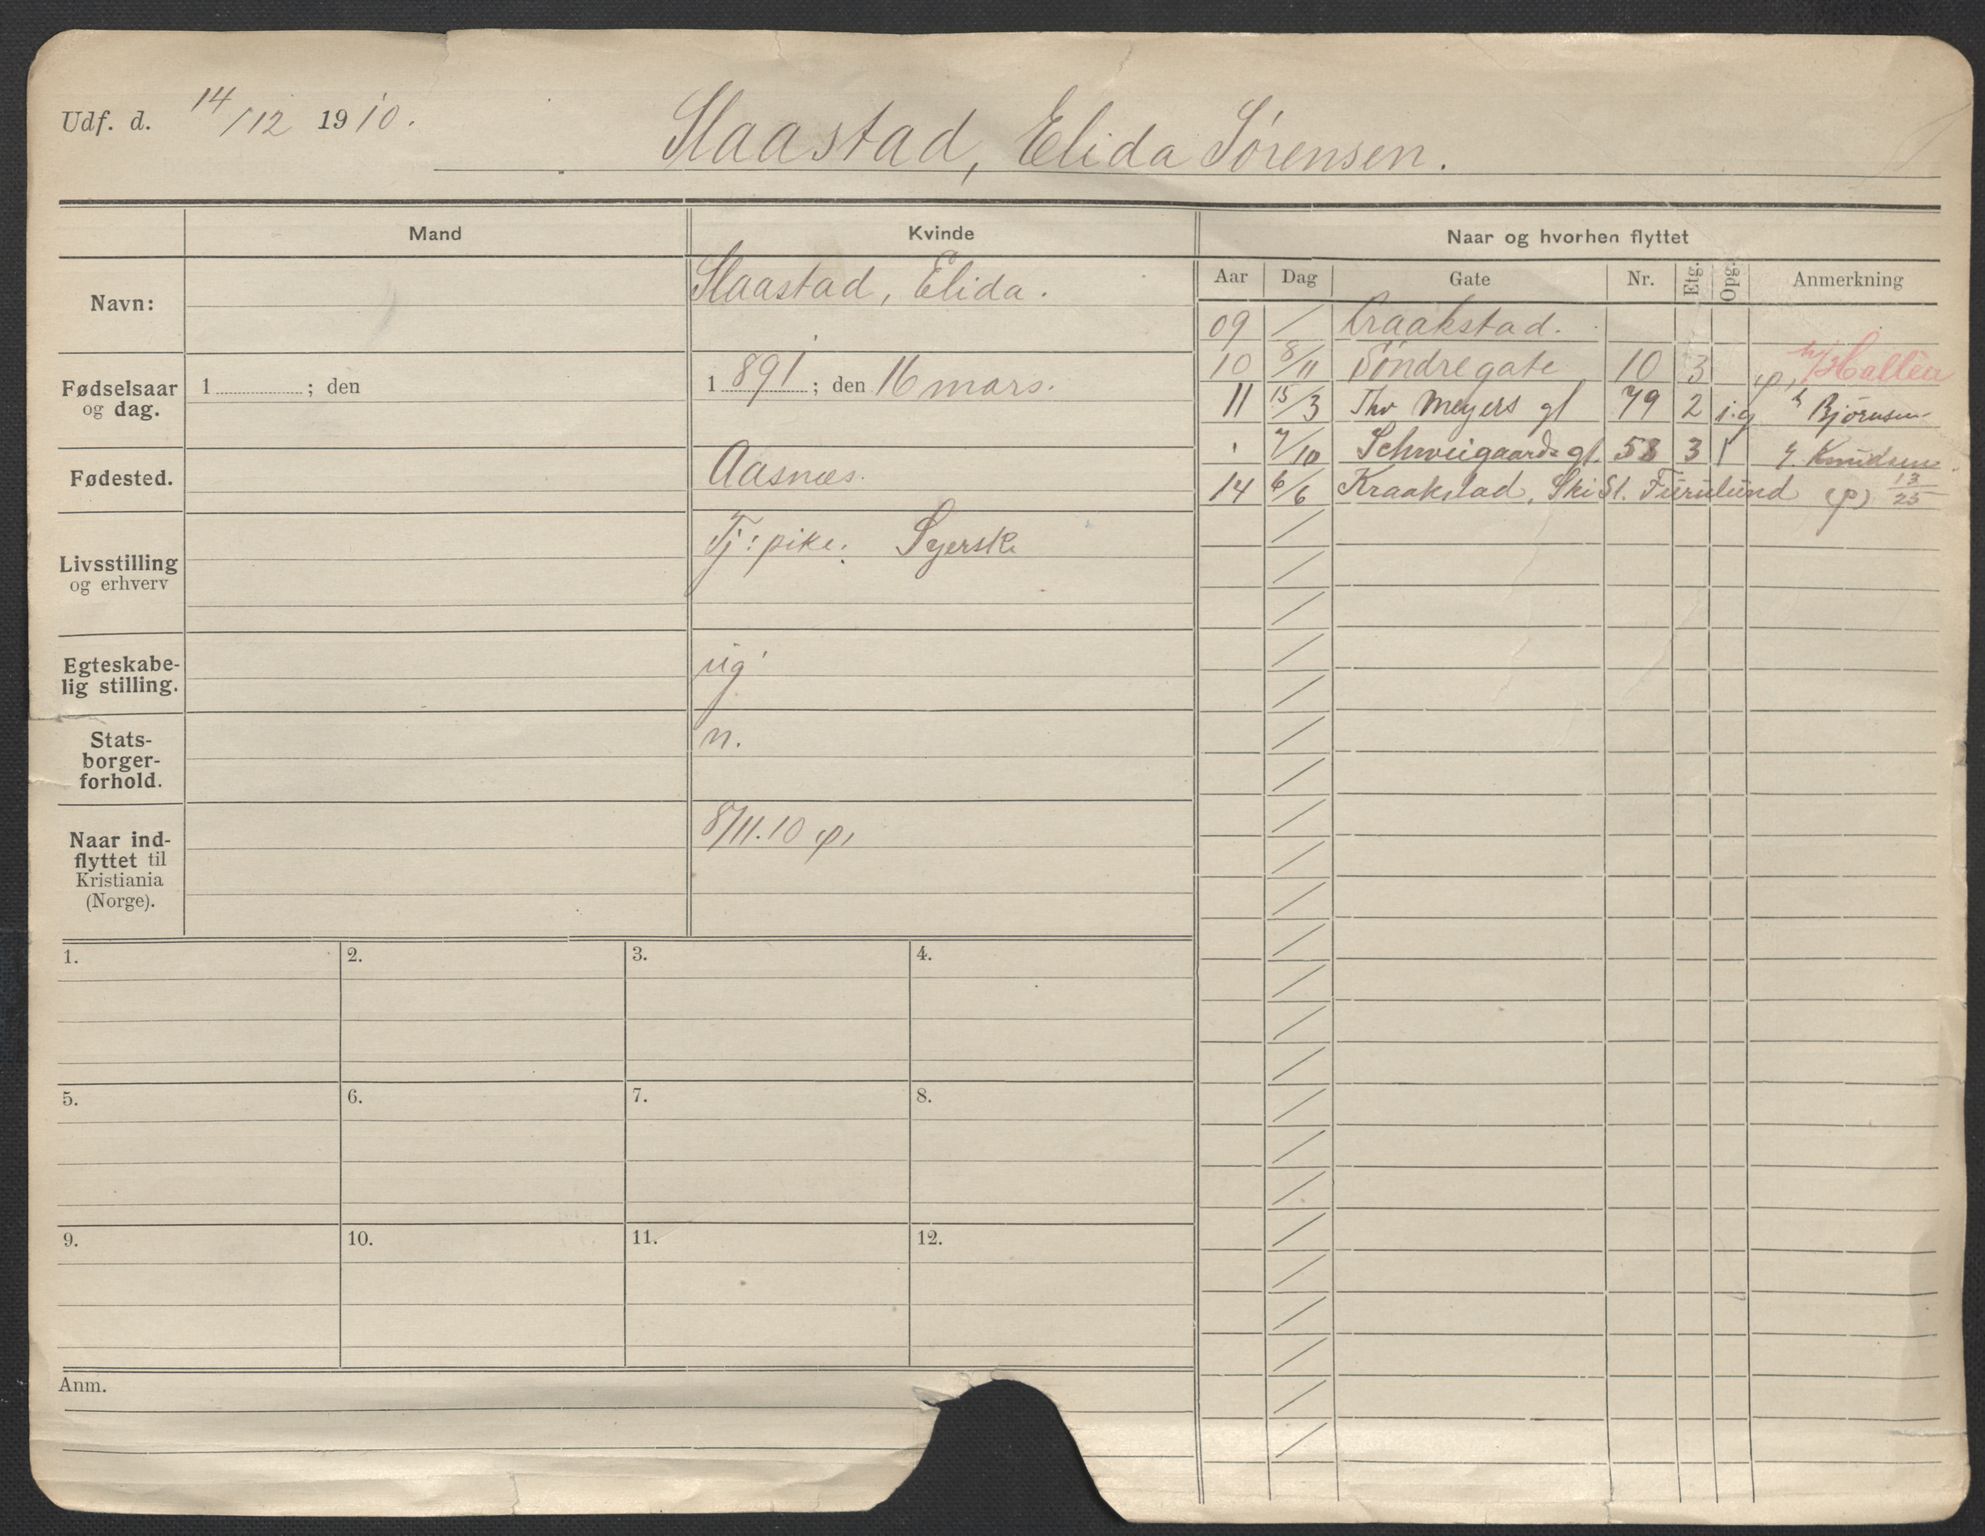 Udf. d. 14/12 1910.
Slaastad, Elida Sørensen.
Mand
Kvinde
Naar og hvorhen flyttet
Aar Dag Gate Nr. Etg. Opg. Anmerkning
Navn:
Slaastad, Elida.
Fødselsaar
og dag.
1 ; den
1891; den 16 mars.
Fødested.
Aasnæs.
Livsstilling
og erhverv
Tj: pike. Syerske
Egteskabe-
lig stilling.
ug
Stats-
borger-
forhold.
n.
Naar ind-
flyttet til
Kristiania
(Norge).
8/11.10 φ,
09 / Kraakstad.
10 8/11 Søndregate 10 3 φ, h/ Hallèn
11 15/3 Thv Meyers gt 79 2 i.g h Bjørnsen
" 7/10 Schweigaardsgt. 58 3 1 Knudsen
14 6/6 Kraakstad, Ski St. Furulund (φ) 13/25
1. 2. 3. 4.
5. 6. 7. 8.
9. 10. 11. 12.
Anm.